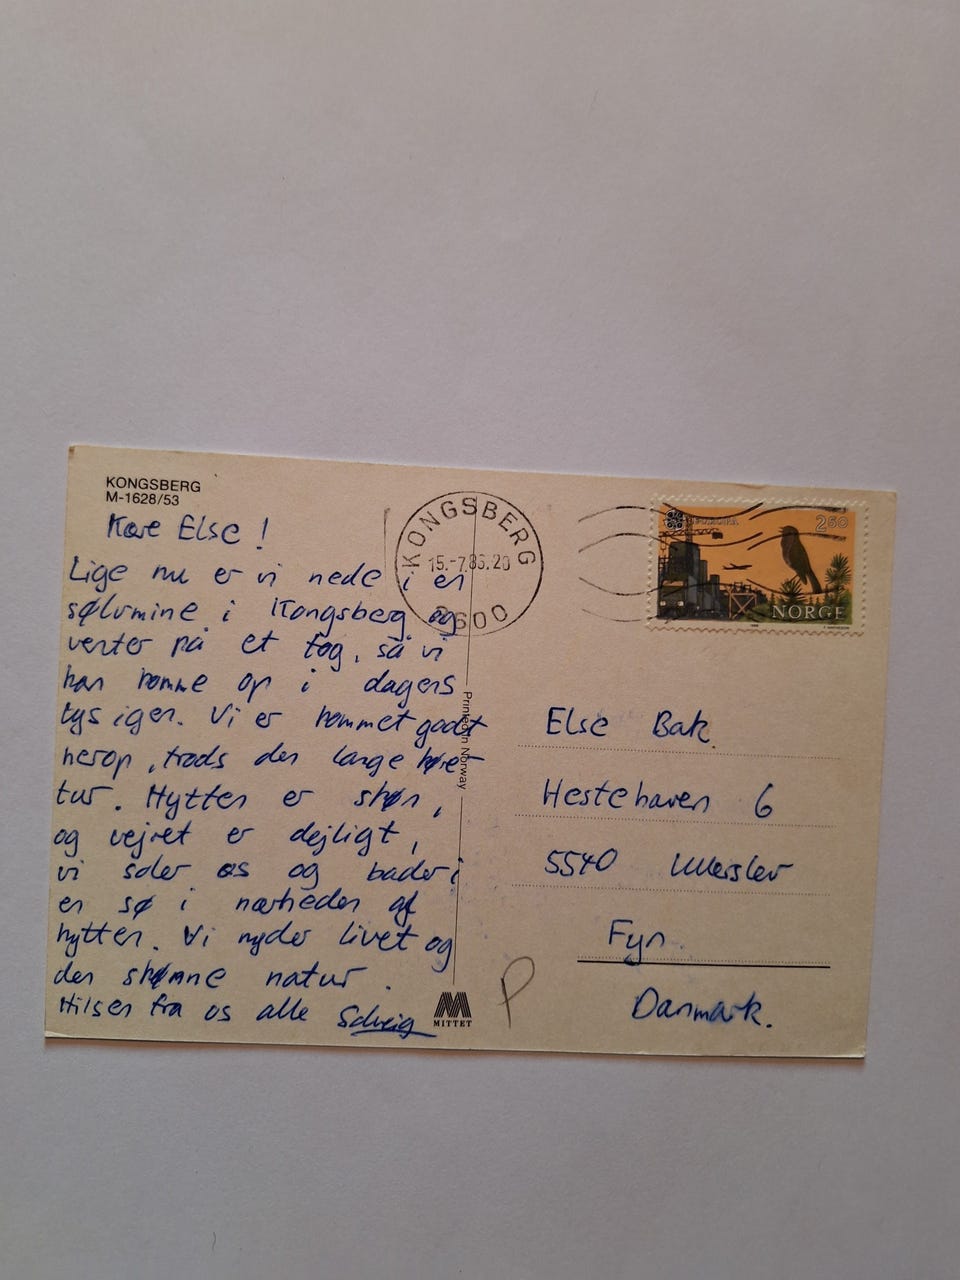 KONGSBERG
M-1628/53
Kære Else!
Lige nu er vi nede i en
sølvmine i Kongsberg og
venter på et tog, så vi
kan komme op i dagens
lys igen. Vi er kommet godt
herop, trods den lange køre-
tur. Hytten er skøn,
og vejret er dejligt,
vi soler os og bader i
en sø i nærheden af
hytten. Vi nyder livet og
den skønne natur.
Hilsen fra os alle Solveig
KONGSBERG
15.-7.86.20
3600
Printed in Norway
MITTET
P
EUROPA
250
NORGE
Else Bak.
Hestehaven 6
5540 Ullerslev
Fyn.
Danmark.